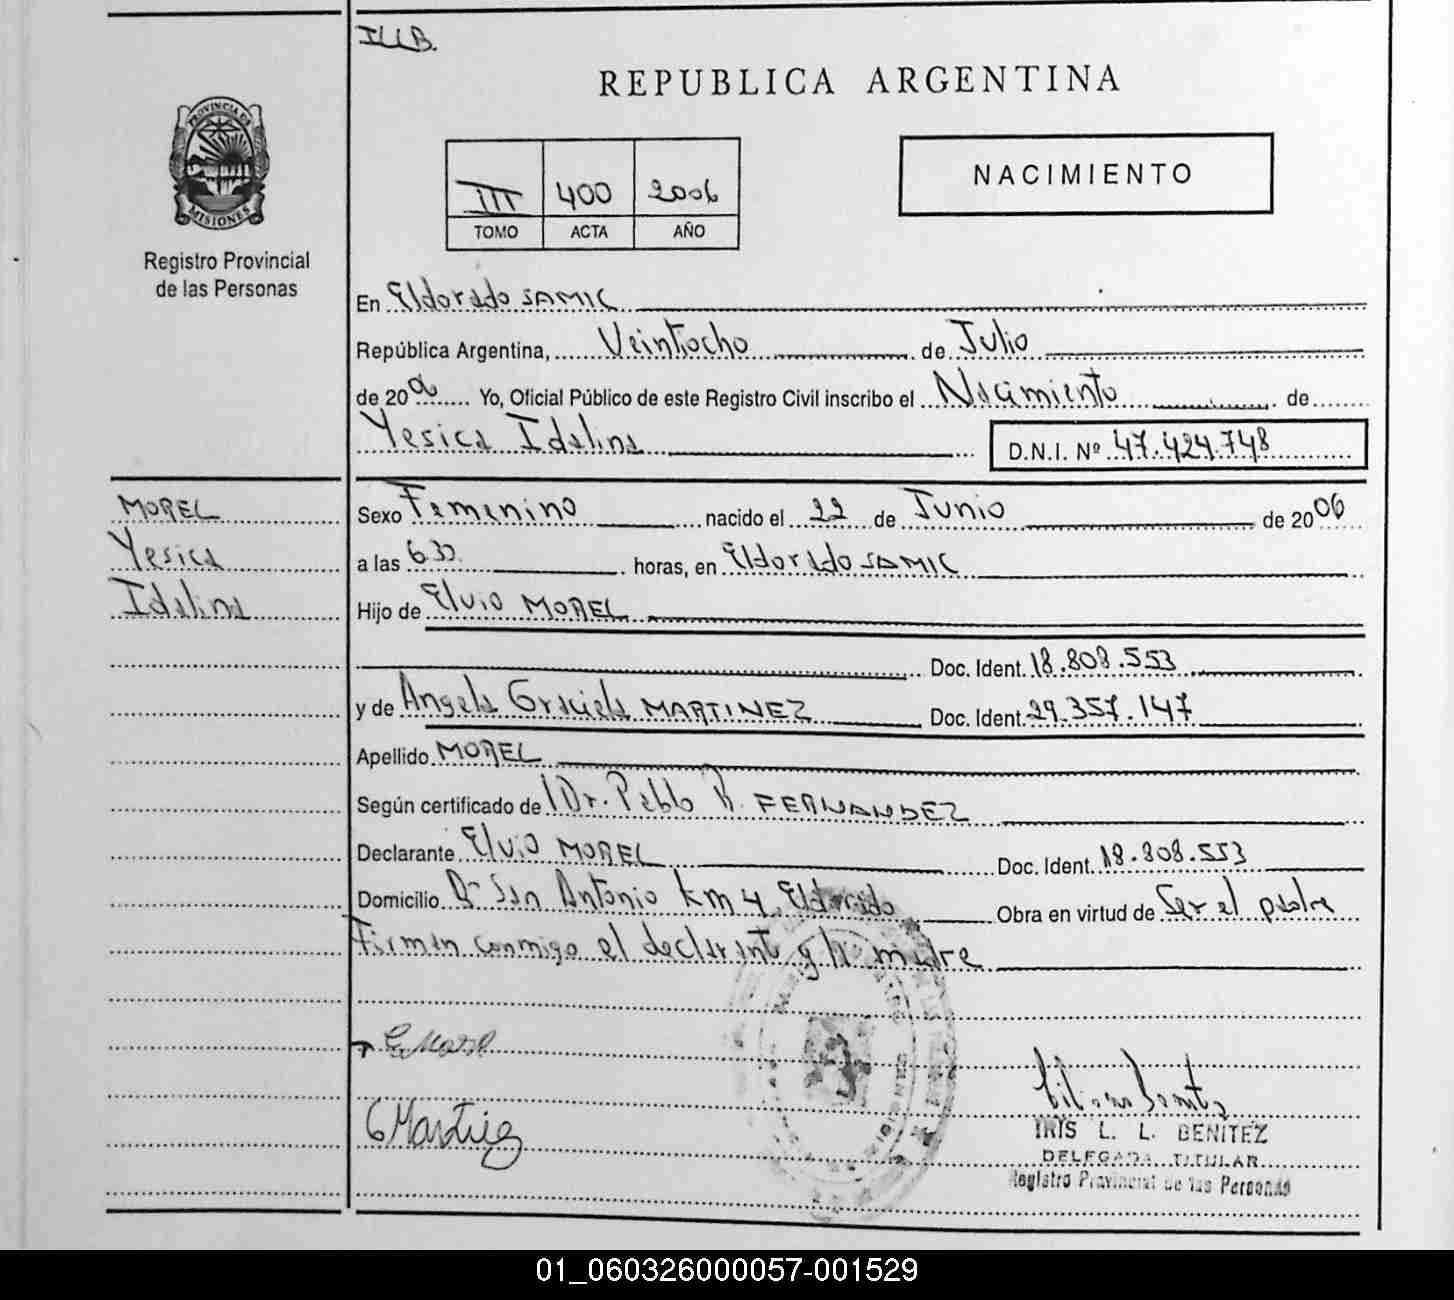 ILLB.
REPUBLICA ARGENTINA
PROVINCIA DE
MISIONES
Registro Provincial
de las Personas
NACIMIENTO
III 400 2006
TOMO ACTA AÑO
En Eldorado SAMIC
República Argentina, Veintiocho de Julio
de 2006 Yo, Oficial Público de este Registro Civil inscribo el Nacimiento de
Yesica Idalina D.N.I. Nº 47.424.748
MOREL
Yesica
Idalina
Sexo Femenino nacido el 22 de Junio de 2006
a las 6 30 horas, en Eldorado SAMIC
Hijo de Elvio MOREL
Doc. Ident. 18.808.553
y de Angela Graciela MARTINEZ Doc. Ident. 29.357.147
Apellido MOREL
Según certificado de Dr. Pablo R. FERNANDEZ
Declarante Elvio MOREL Doc. Ident. 18.808.553
Domicilio Bº San Antonio km 4 Eldorado Obra en virtud de Ser el padre
Firman conmigo el declarante y la madre
E Morel
G Martinez
IRIS L. L. BENITEZ
DELEGADA TITULAR
Registro Provincial de las Personas
01_060326000057-001529